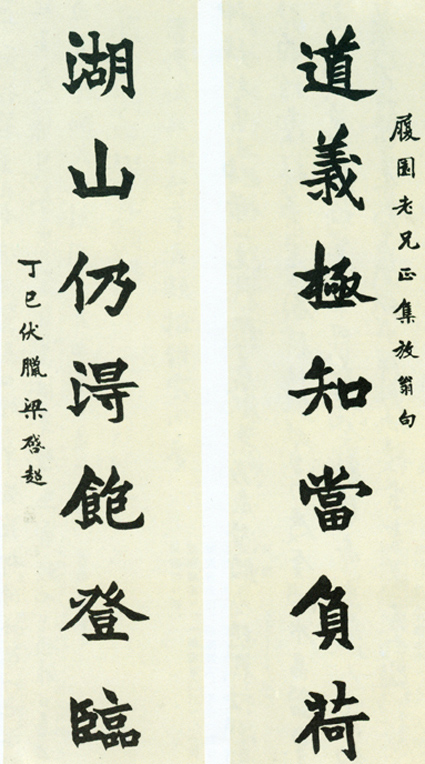 履園老兄正集放翁句
道義極知當負荷
湖山仍得飽登臨
丁巳伏臘梁啓超